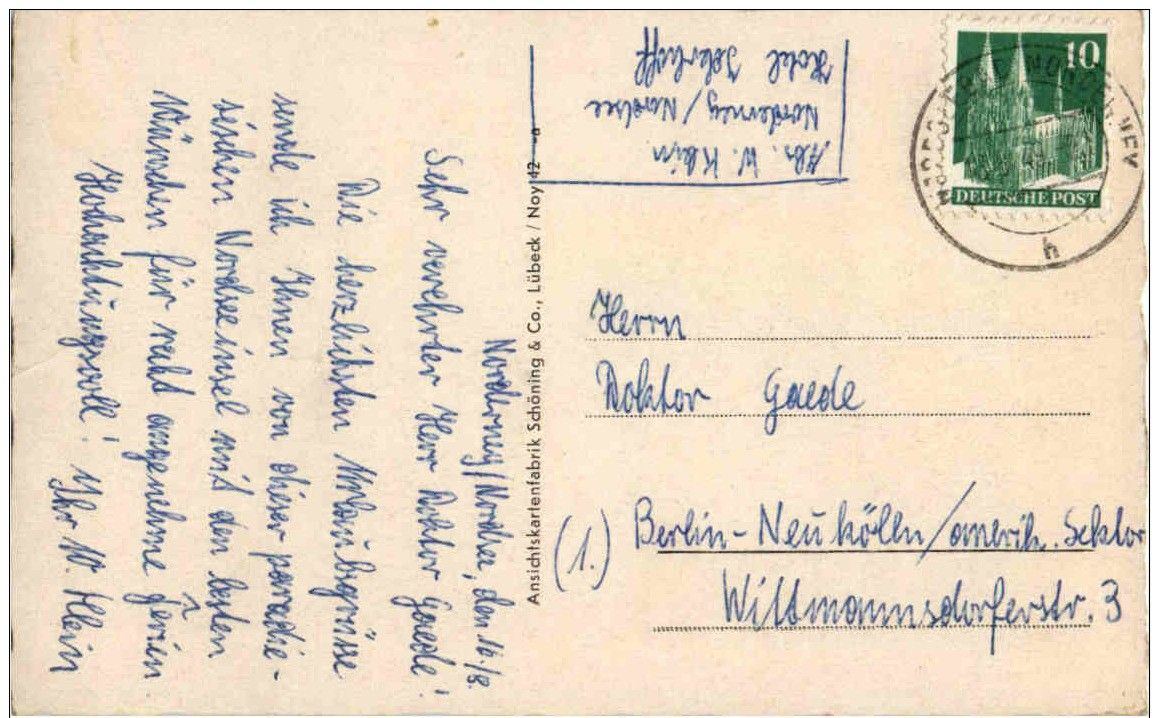 Norderney/Nordsee, den 16./8.
Sehr verehrter Herr Doktor Gaede!
Die herzlichsten Urlaubsgrüsse
sende ich Ihnen von dieser paradie-
sischen Nordseeinsel mit den besten
Wünschen für recht angenehme Ferien.
Hochachtungsvoll! Ihr W. Klein
Ansichtskartenfabrik Schöning & Co., Lübeck / Noy 42 a
Abs. W. Klein
Norderney/Nordsee
Hotel
10
DEUTSCHE POST
h
Herrn
Doktor Gaede
(1.) Berlin-Neukölln/amerik. Sektor
Wittmannsdorferstr. 3